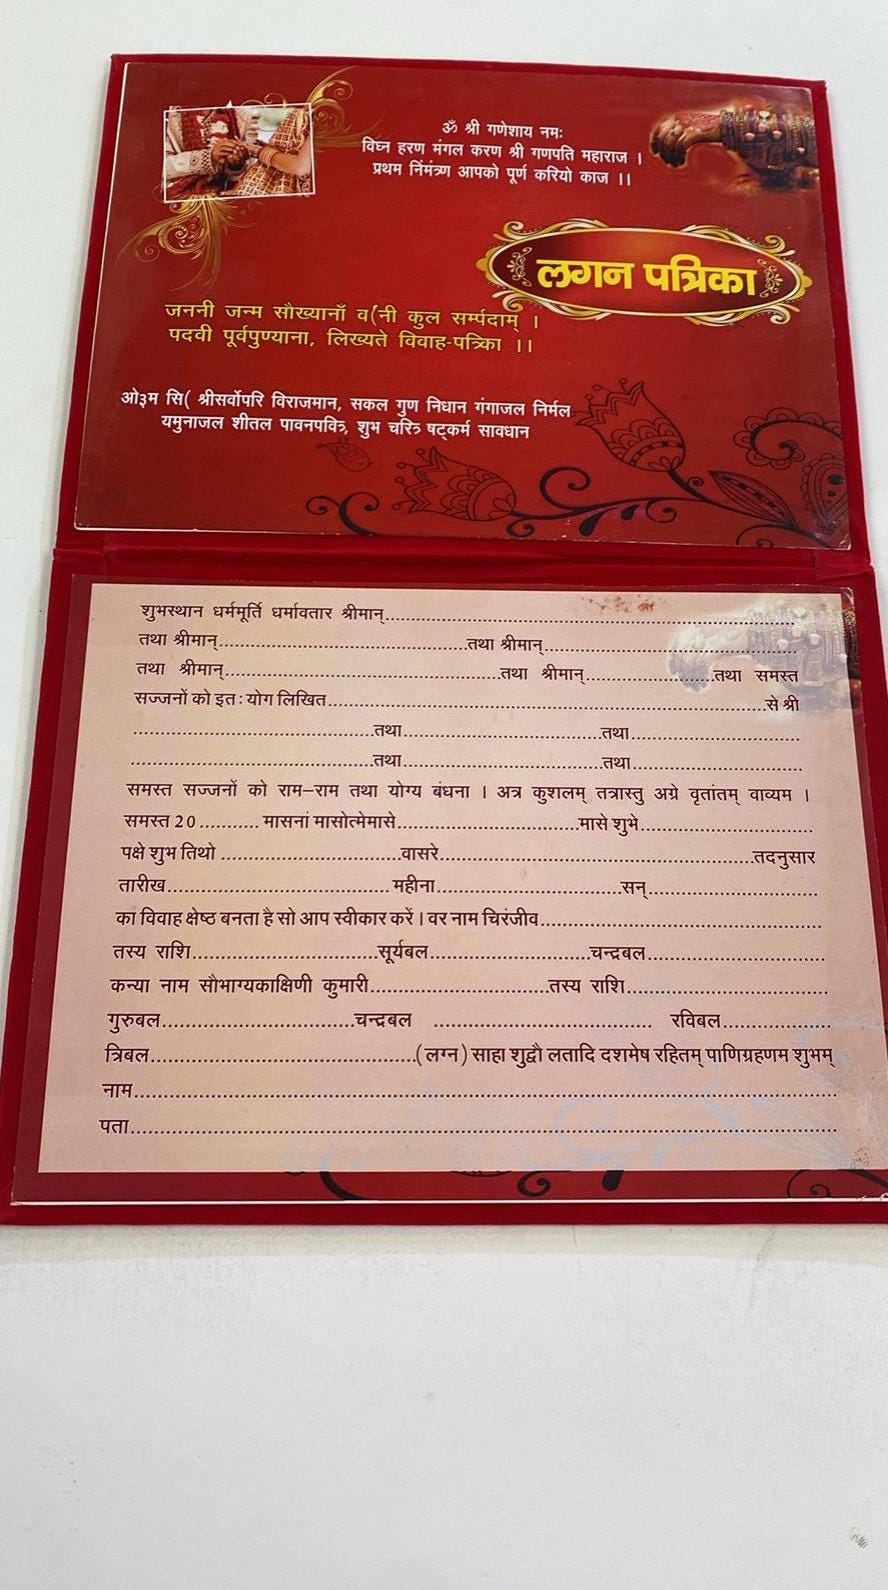 ॐ श्री गणेशाय नमः
विघ्न हरण मंगल करण श्री गणपति महाराज ।
प्रथम निंमंत्र्ण आपको पूर्ण करियो काज ।।
लगन पत्रिका
जननी जन्म सौख्यानाँ व(नी कुल सर्म्पदाम् ।
पदवी पूर्वपुण्याना, लिख्यते विवाह-पत्र्किा ।।
ओ३म सि( श्रीसर्वोपरि विराजमान, सकल गुण निधान गंगाजल निर्मल
यमुनाजल शीतल पावनपवित्र्, शुभ चरित्र् षट्कर्म सावधान
शुभस्थान धर्ममूर्ति धर्मावतार श्रीमान्..........
तथा श्रीमान्..........तथा श्रीमान्..........
तथा श्रीमान्..........तथा श्रीमान्..........तथा समस्त
सज्जनों को इतः योग लिखित..........से श्री
..........तथा..........तथा..........
..........तथा..........तथा..........
समस्त सज्जनों को राम-राम तथा योग्य बंधना । अत्र कुशलम् तत्रास्तु अग्रे वृतांतम् वाव्यम ।
समस्त 20.......... मासनां मासोत्मेमासे..........मासे शुभे..........
पक्षे शुभ तिथो ..........वासरे..........तदनुसार
तारीख.......... महीना..........सन्..........
का विवाह क्षेष्ठ बनता है सो आप स्वीकार करें । वर नाम चिरंजीव..........
तस्य राशि..........सूर्यबल..........चन्द्रबल..........
कन्या नाम सौभाग्यकाक्षिणी कुमारी..........तस्य राशि..........
गुरुबल..........चन्द्रबल .......... रविबल..........
त्रिबल..........( लग्न ) साहा शुद्वौ लतादि दशमेष रहितम् पाणिग्रहणम शुभम्
नाम..........
पता..........